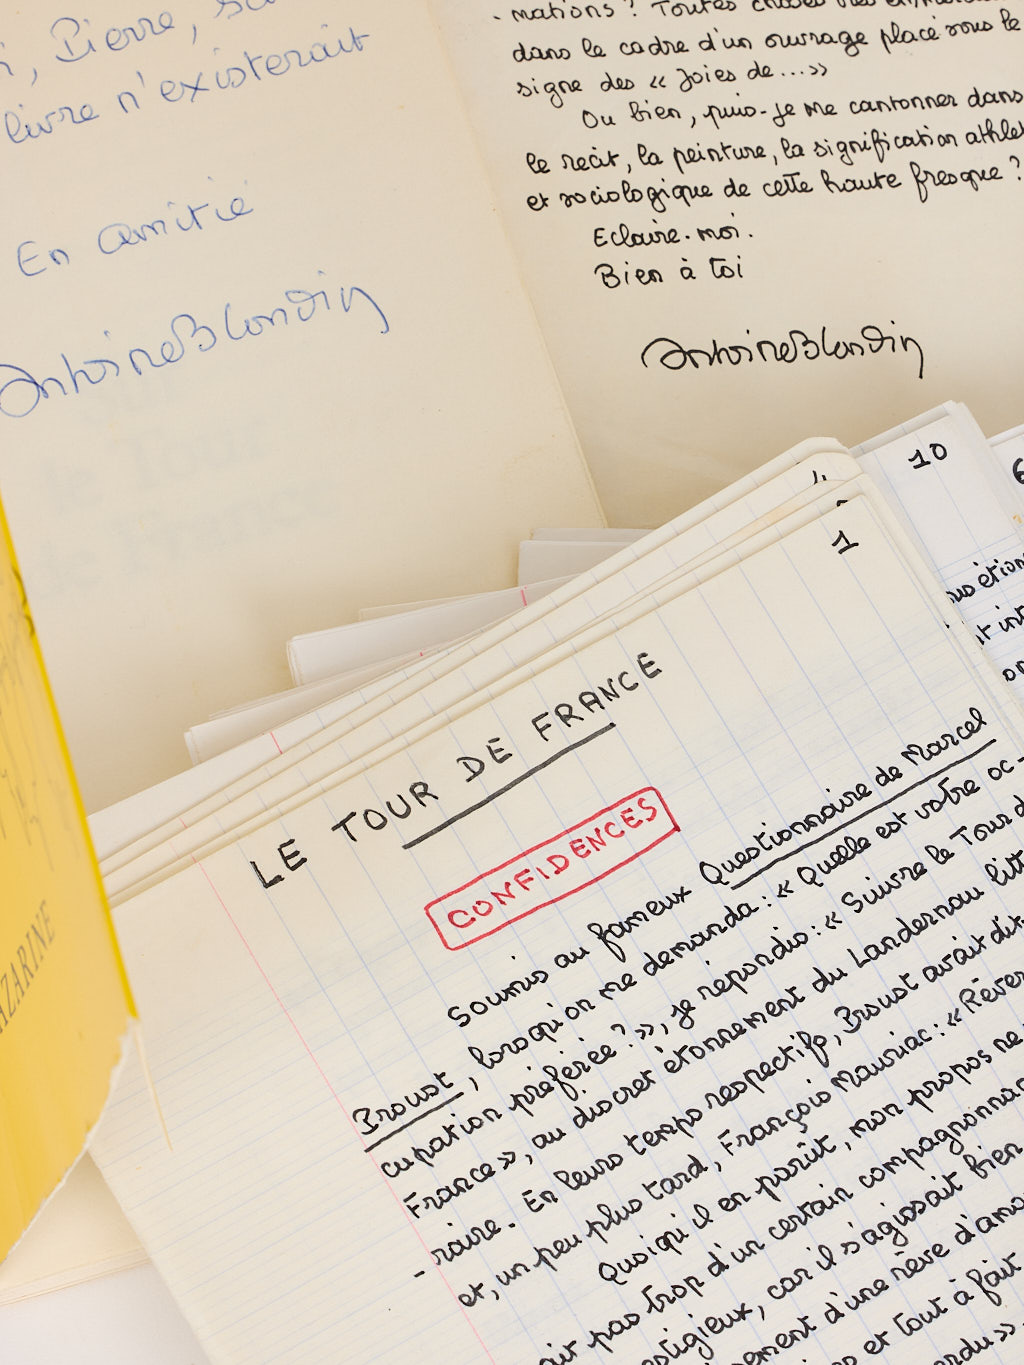 Pierre,
livre n'existerait
En amitié
Antoine Blondin
- mations ? Toutes choses
dans le cadre d'un ouvrage placé sous le
signe des « Joies de... »
Ou bien, puis-je me cantonner dans
le récit, la peinture, la signification athlet
et sociologique de cette haute fresque ?
Eclaire-moi.
Bien à toi
Antoine Blondin
10
6
4
1
LE TOUR DE FRANCE
CONFIDENCES
Soumis au fameux Questionnaire de Marcel
Proust, lorsqu'on me demanda : « Quelle est votre oc-
cupation préférée ? », je répondis : « Suivre le Tour d
France », au discret étonnement du Landernau litt
- raire. En leurs temps respectifs, Proust avait dit
et, un peu plus tard, François Mauriac : « Rêver
Quoiqu'il en parût, mon propos ne
ait pas trop d'un certain compagnonna
estigieux, car il s'agissait bien
ement d'une rêve d'amo
es et tout à fait
erdu ».
ous étion
it int
on
AZARINE